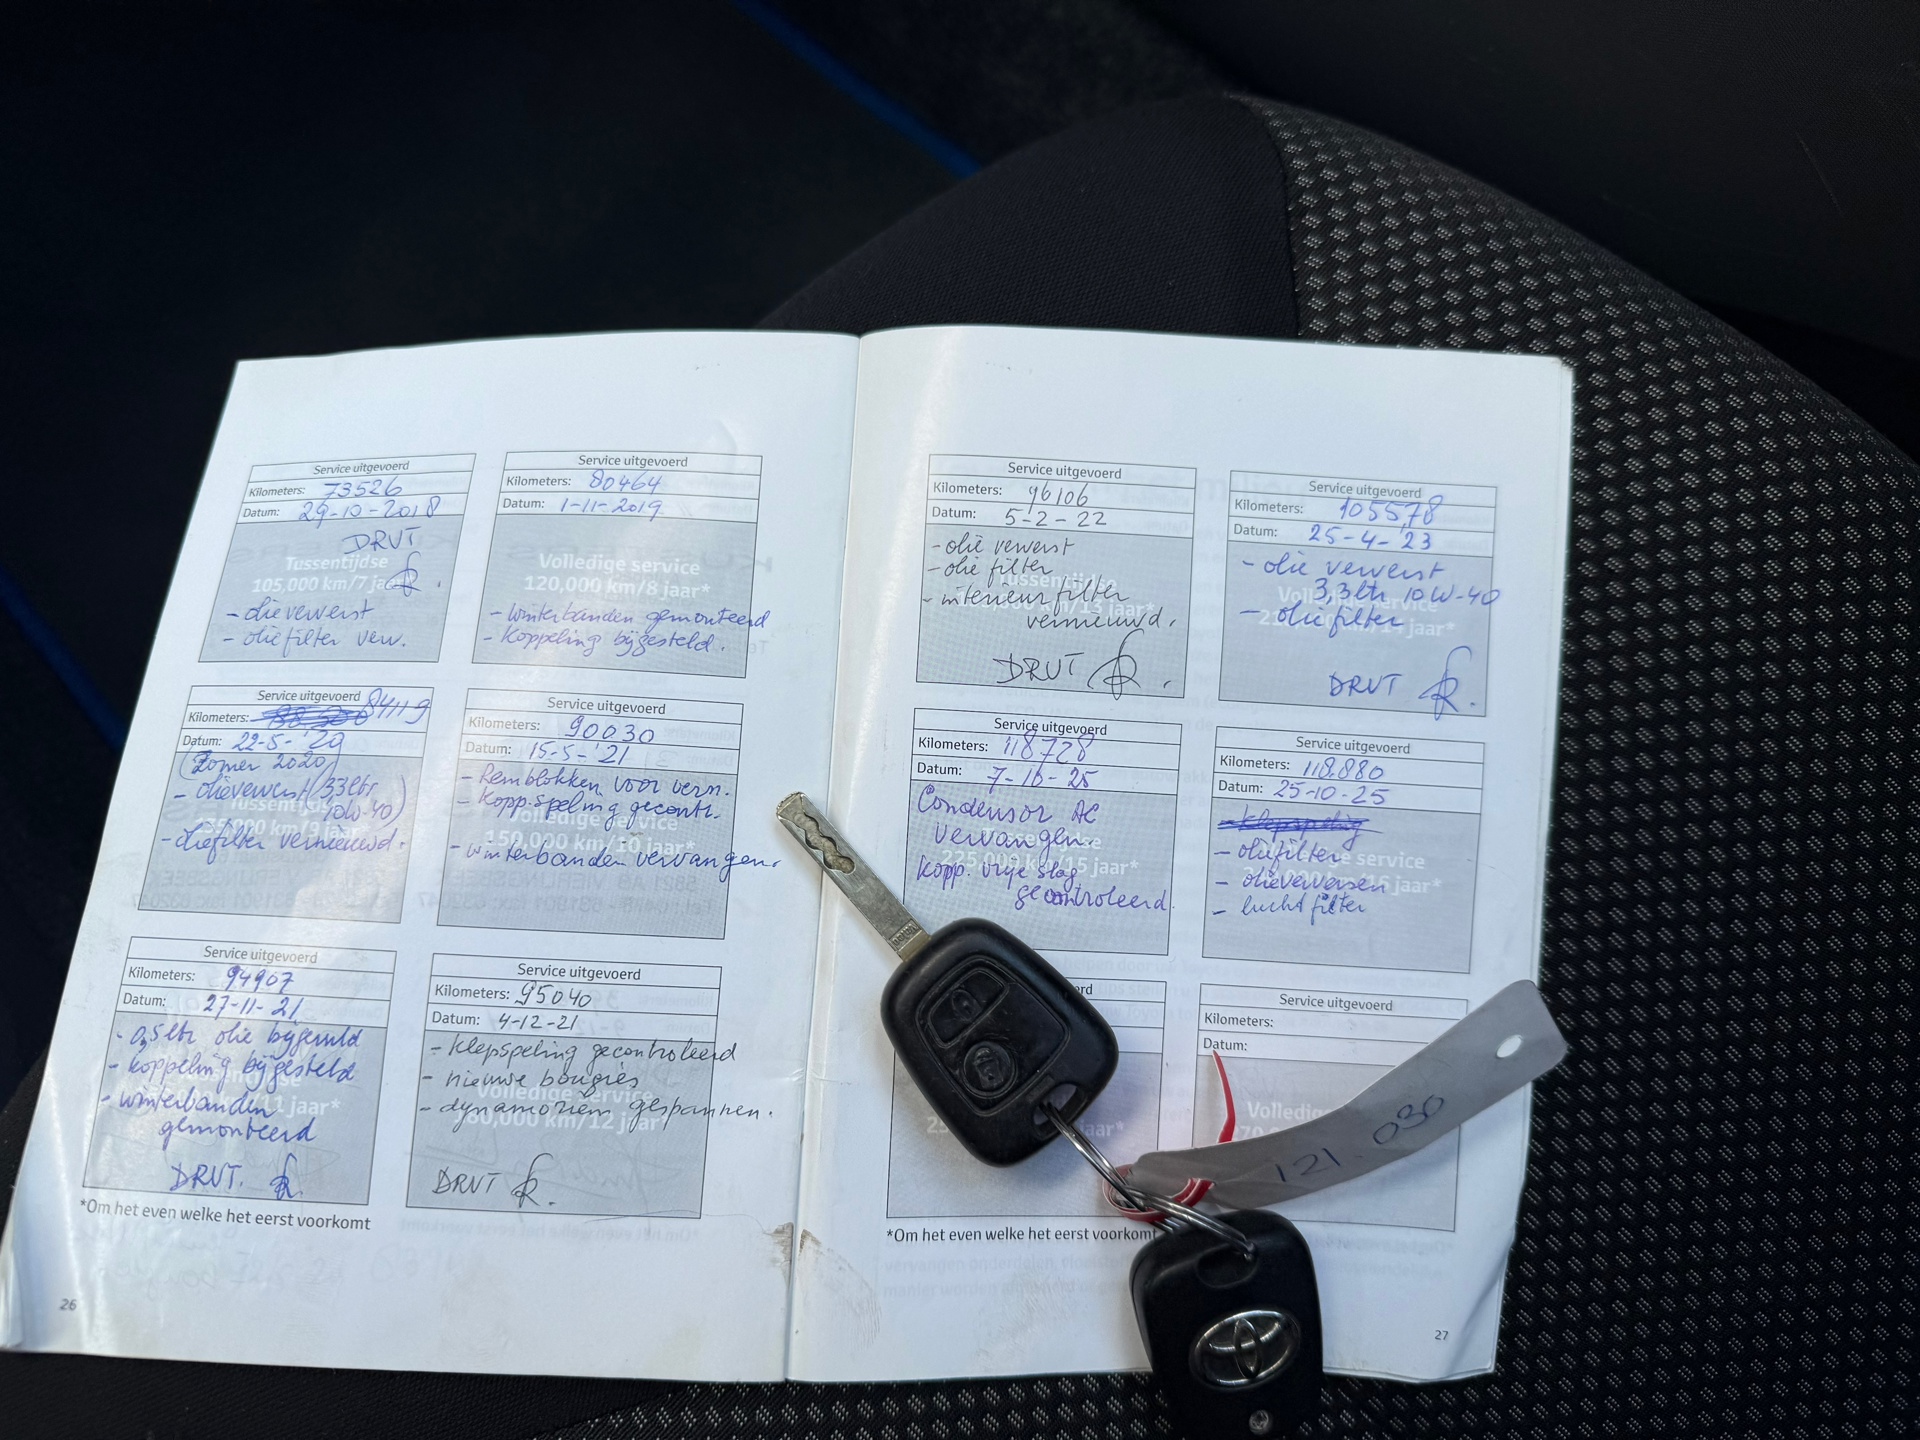 Service uitgevoerd
Kilometers: 73526
Datum: 29-10-2018
DRVT
Tussentijdse
105,000 km/7 jaar*
- olie ververst
- oliefilter verv.
Service uitgevoerd
Kilometers: 80464
Datum: 1-11-2019
Volledige service
120,000 km/8 jaar*
- winterbanden gemonteerd
- Koppeling bijgesteld.
Service uitgevoerd
Kilometers: 84119
Datum: 22-5-'20
(Zomer 2020)
- olie ververst (3,3 ltr
10W-40)
- oliefilter vernieuwd.
Service uitgevoerd
Kilometers: 90030
Datum: 15-5-'21
- Remblokken voor vern.
- Kopp. speling gecontr.
Volledige service
150,000 km/10 jaar*
- winterbanden vervangen.
Service uitgevoerd
Kilometers: 94907
Datum: 27-11-21
- 0,5 ltr olie bijgevuld
- koppeling bijgesteld
- winterbanden
gemonteerd
11 jaar*
DRVT.
Service uitgevoerd
Kilometers: 95040
Datum: 4-12-21
- klepspeling gecontroleerd
- nieuwe bougies
- dynamoriem gespannen.
Volledige service
80,000 km/12 jaar*
DRVT
*Om het even welke het eerst voorkomt
26
Service uitgevoerd
Kilometers: 96106
Datum: 5-2-22
- olie ververst
- olie filter
Tussentijdse
km/13 jaar*
- interieurfilter
vernieuwd.
DRVT
Service uitgevoerd
Kilometers: 105578
Datum: 25-4-'23
- olie ververst
3,3 ltr 10W-40
- oliefilter
Volledige service
km/14 jaar*
DRVT
Service uitgevoerd
Kilometers: 118728
Datum: 7-10-25
Condensor AC
vervangen
Kopp. vrije slag
gecontroleerd.
225,000 km/15 jaar*
Service uitgevoerd
Kilometers: 118.880
Datum: 25-10-25
- klepspeling
- oliefilter
- olie verversen
- luchtfilter
service
jaar*
jaar*
Service uitgevoerd
Kilometers:
Datum:
*Om het even welke het eerst voorkomt
121.030
27